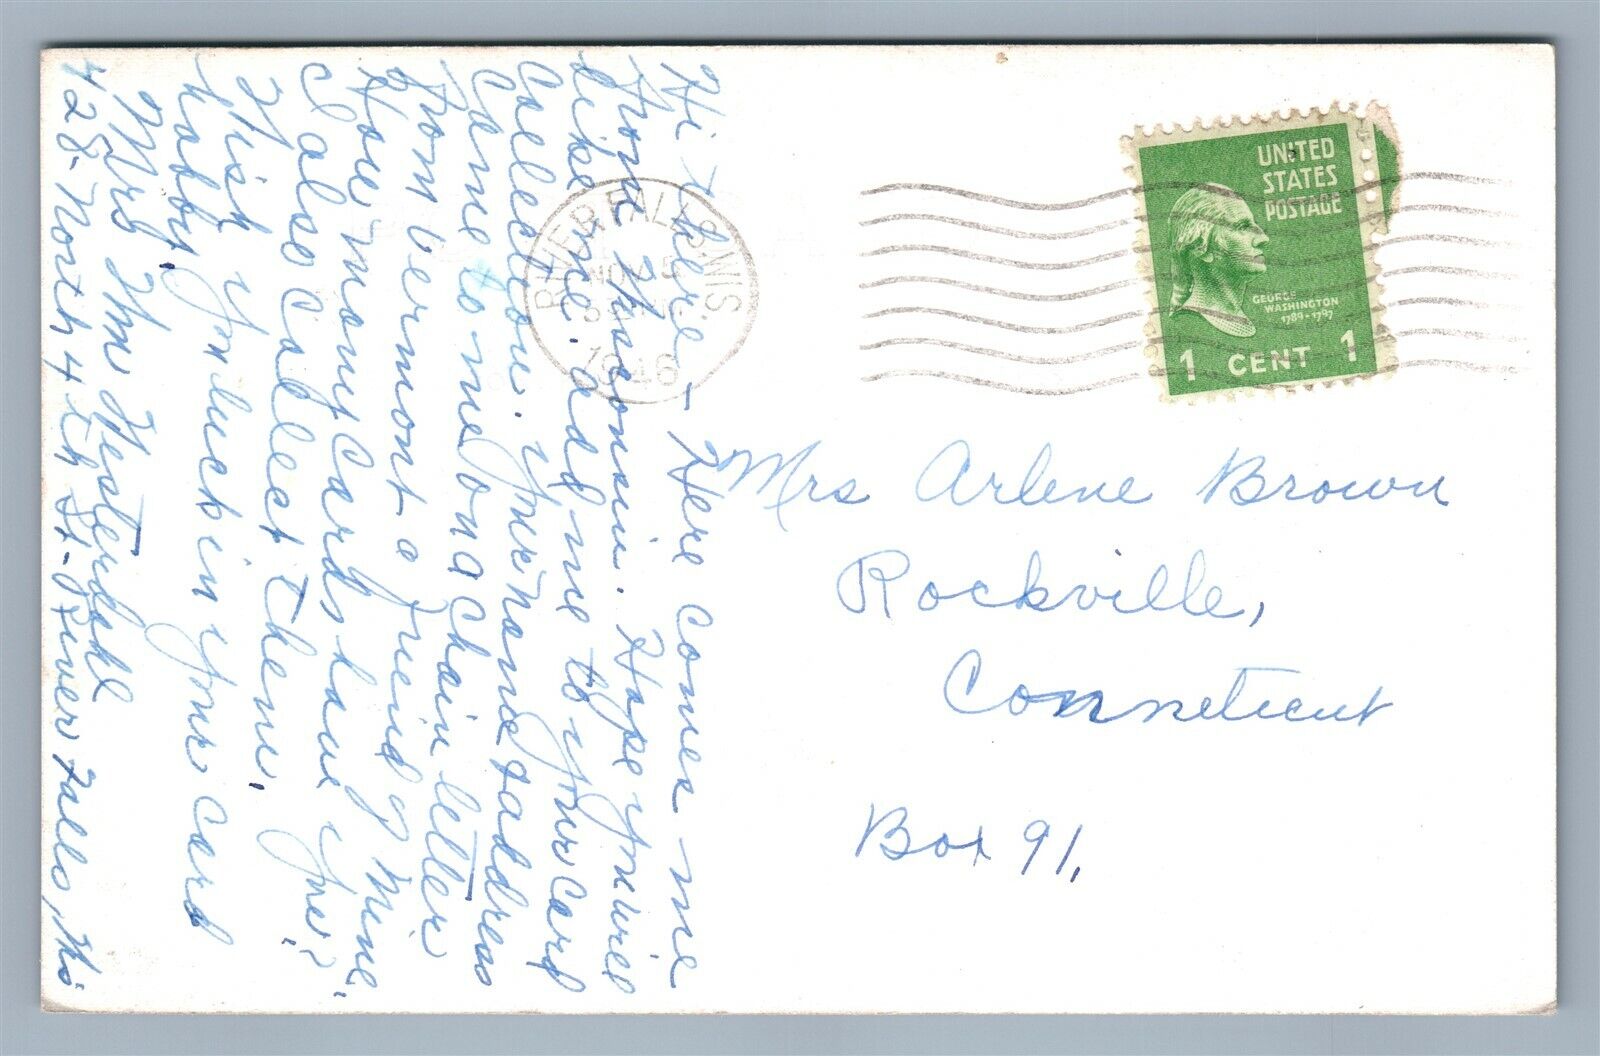 Hi there - Here comes me
from Wisconsin. Hope you will
like me. add me to your card
Collection. Your name & address
Came to me on a Chain letter
from Vermont a friend of mine.
How many Cards have you?
I also Collect them.
Wish you luck in your card
hobby.
Mrs Wm Westerdahl
428-North 4th St-River Falls, Wis
RIVER FALLS, WIS.
NOV 5
1946
UNITED
STATES
POSTAGE
GEORGE
WASHINGTON
1789-1797
1 CENT 1
Mrs Arlene Brown
Rockville,
Conneticut
Box 91,